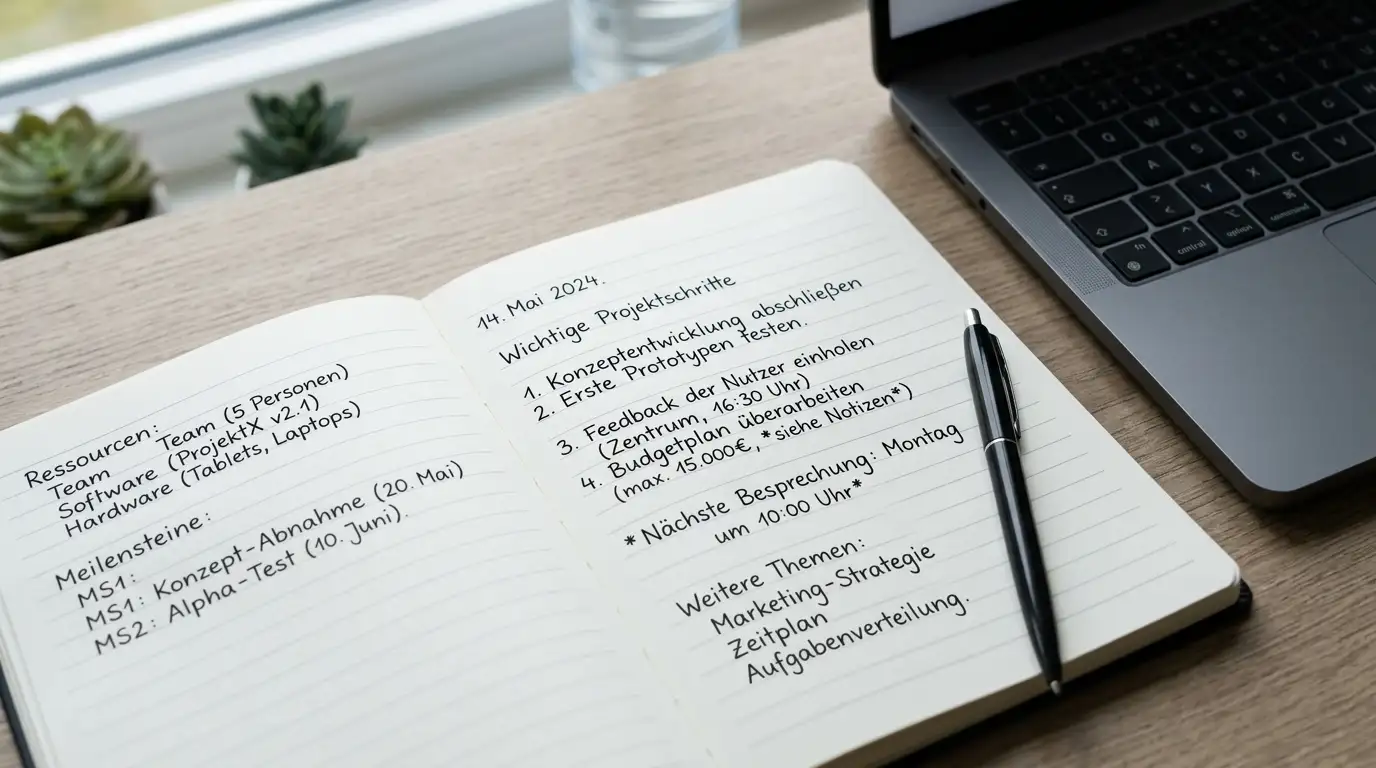 Ressourcen:
Team Team (5 Personen)
Software (ProjektX v2.1)
Hardware (Tablets, Laptops)
Meilensteine:
MS1:
MS1: Konzept-Abnahme (20. Mai)
MS2: Alpha-Test (10. Juni).
14. Mai 2024.
Wichtige Projektschritte
1. Konzeptentwicklung abschließen
2. Erste Prototypen testen.
3. Feedback der Nutzer einholen
(Zentrum, 16:30 Uhr)
4. Budgetplan überarbeiten
(max. 15.000€, *siehe Notizen*)
*Nächste Besprechung: Montag
um 10:00 Uhr*
Weitere Themen:
Marketing-Strategie
Zeitplan
Aufgabenverteilung.